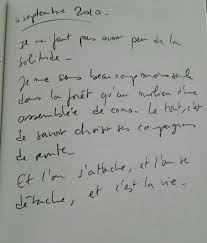 4 septembre 2010.
Il ne faut pas avoir peur de la
solitude.
Je me sens beaucoup moins seule
dans la forêt qu'au milieu d'une
assemblée de cons. Le tout, c'est
de savoir choisir ses compagnons
de route.
Et l'on s'attache, et l'on se
détache, et c'est la vie.